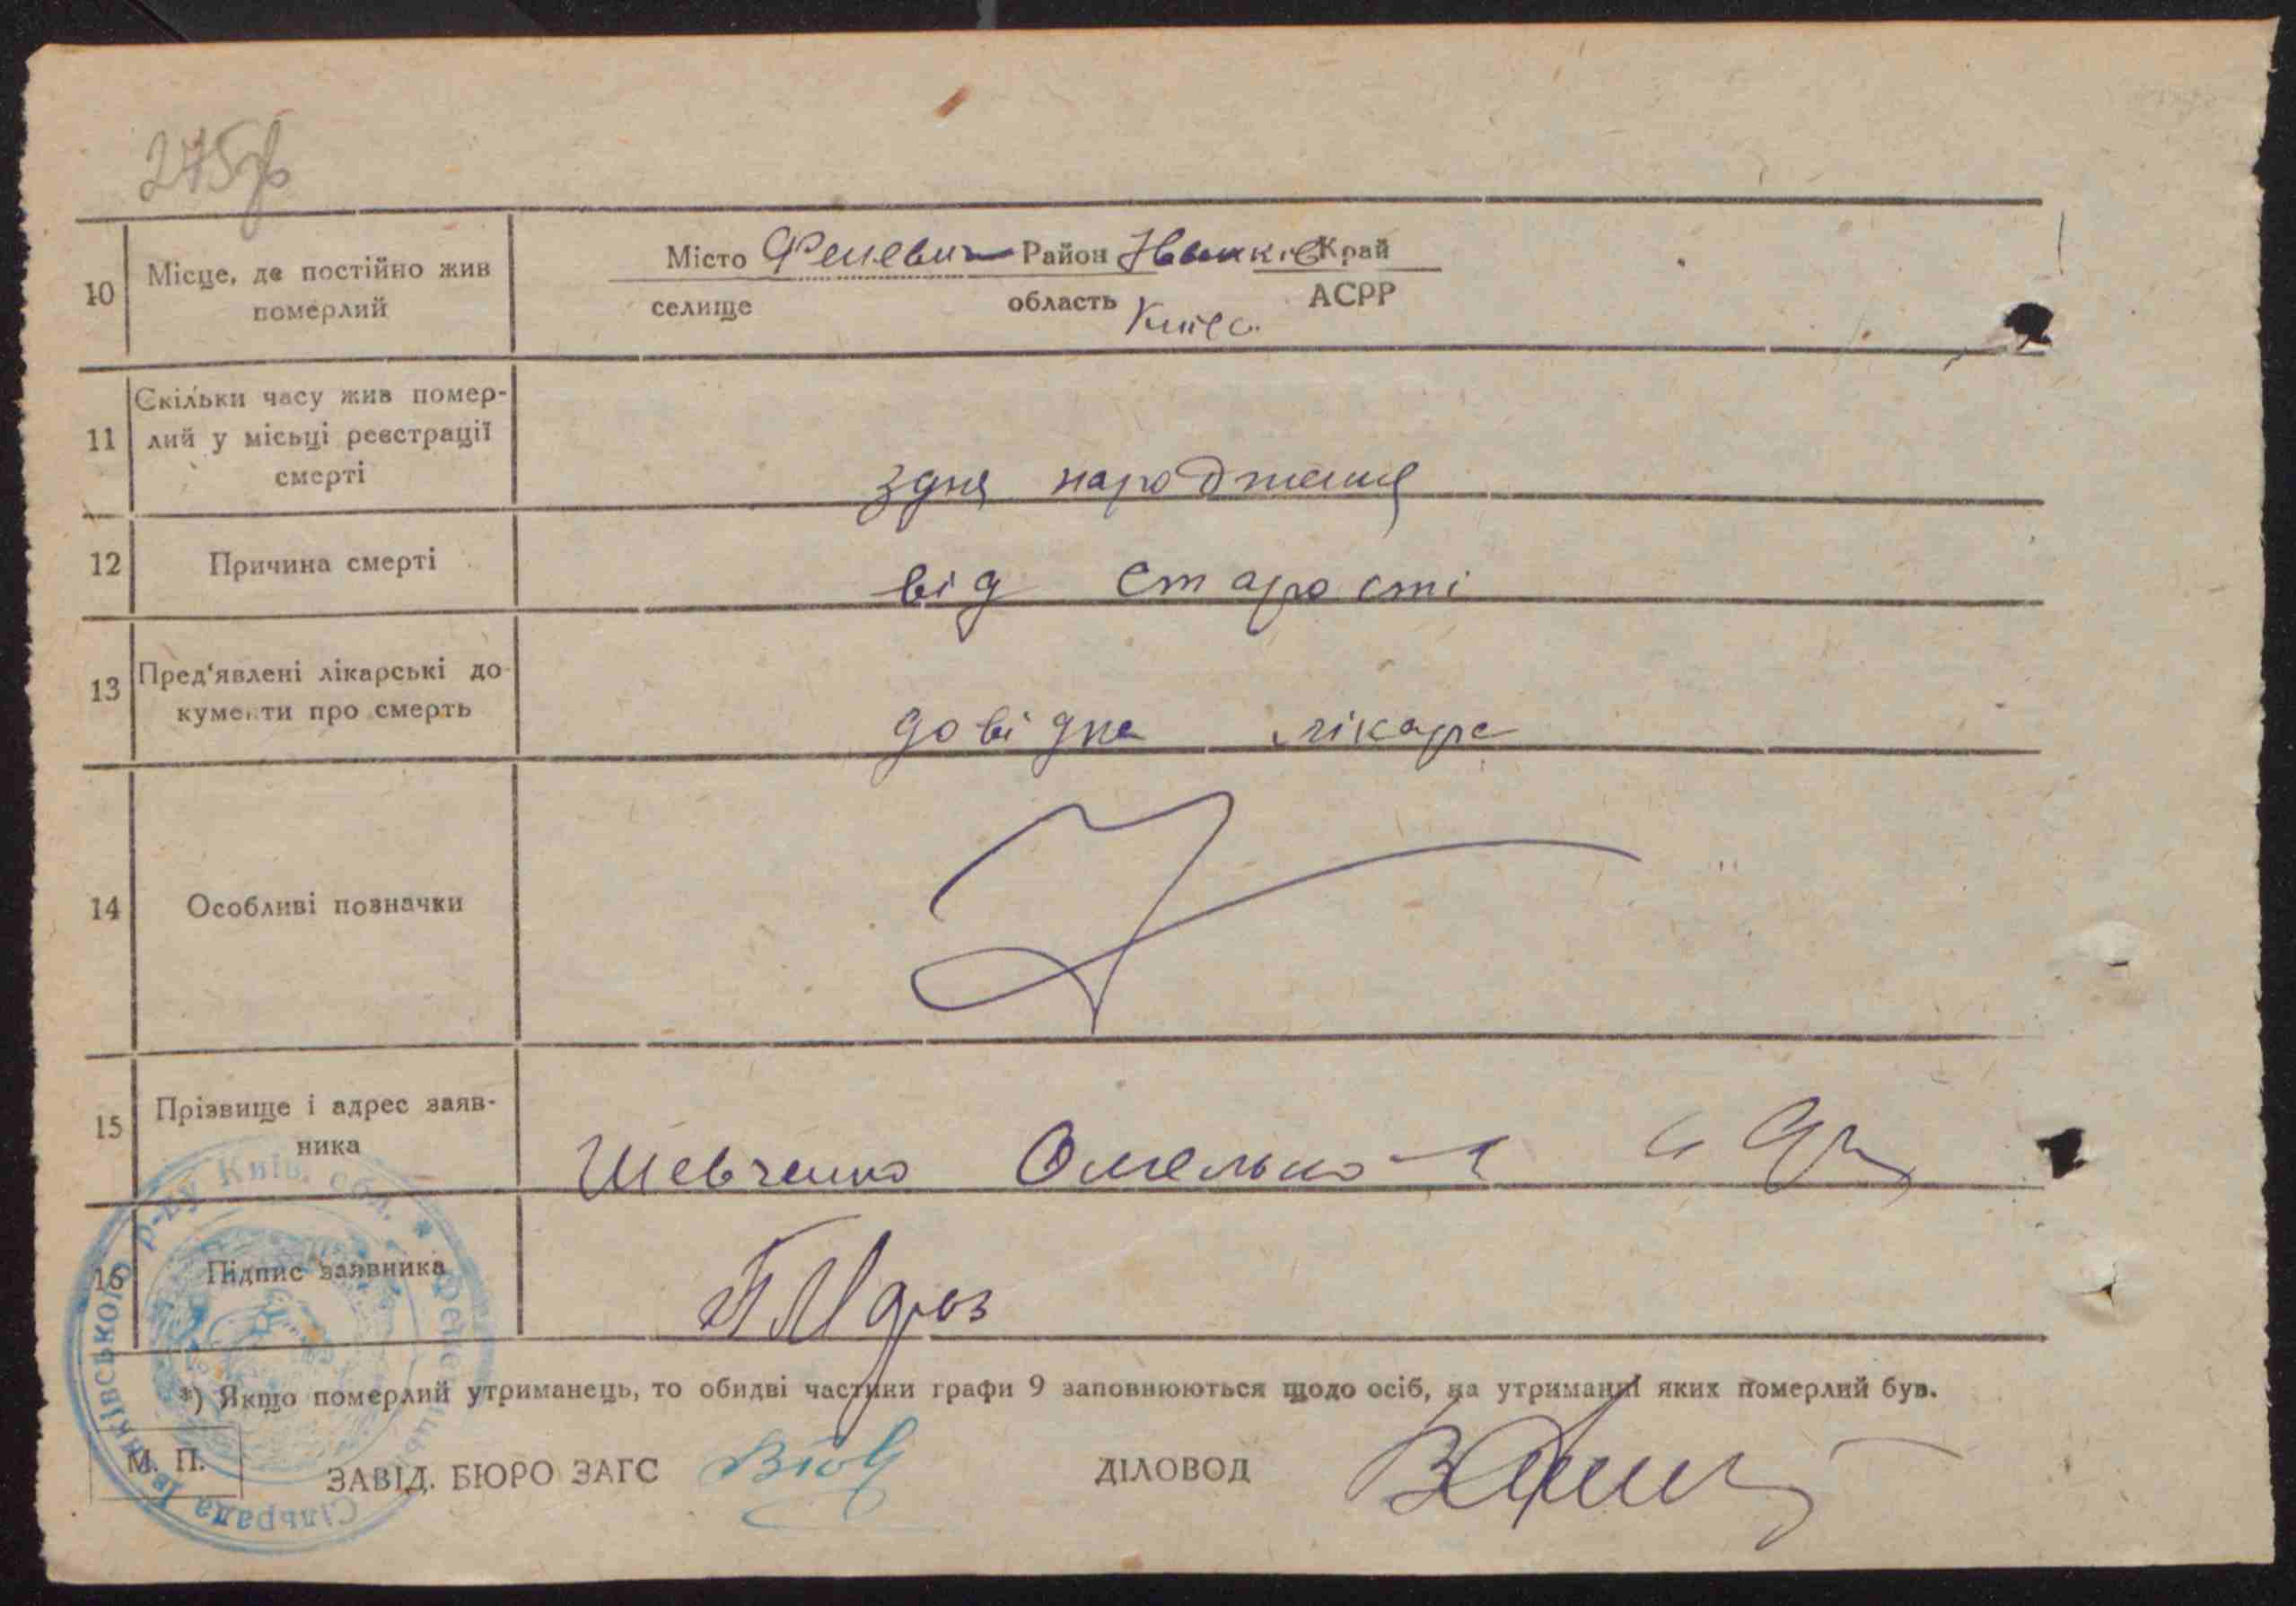 275
10 Місце, де постійно жив
померлий
Місто Феневич Район Іванків Край
селище область Київс. АСРР
11 Скільки часу жив помер-
лий у місьці реєстрації
смерті
здня народження
12 Причина смерті
від старості
13 Пред'явлені лікарські до-
кументи про смерть
довідка лікаря
14 Особливі позначки
15 Прізвище і адрес заяв-
ника
Шевченко Омелько
16 Підпис заявника
*) Якщо померлий утриманець, то обидві частини графи 9 заповнюються щодо осіб, на утриманні яких померлий був.
М. П.
ЗАВІД. БЮРО ЗАГС ДІЛОВОД
Сільрада Іванківського р-ну Київ. обл. *